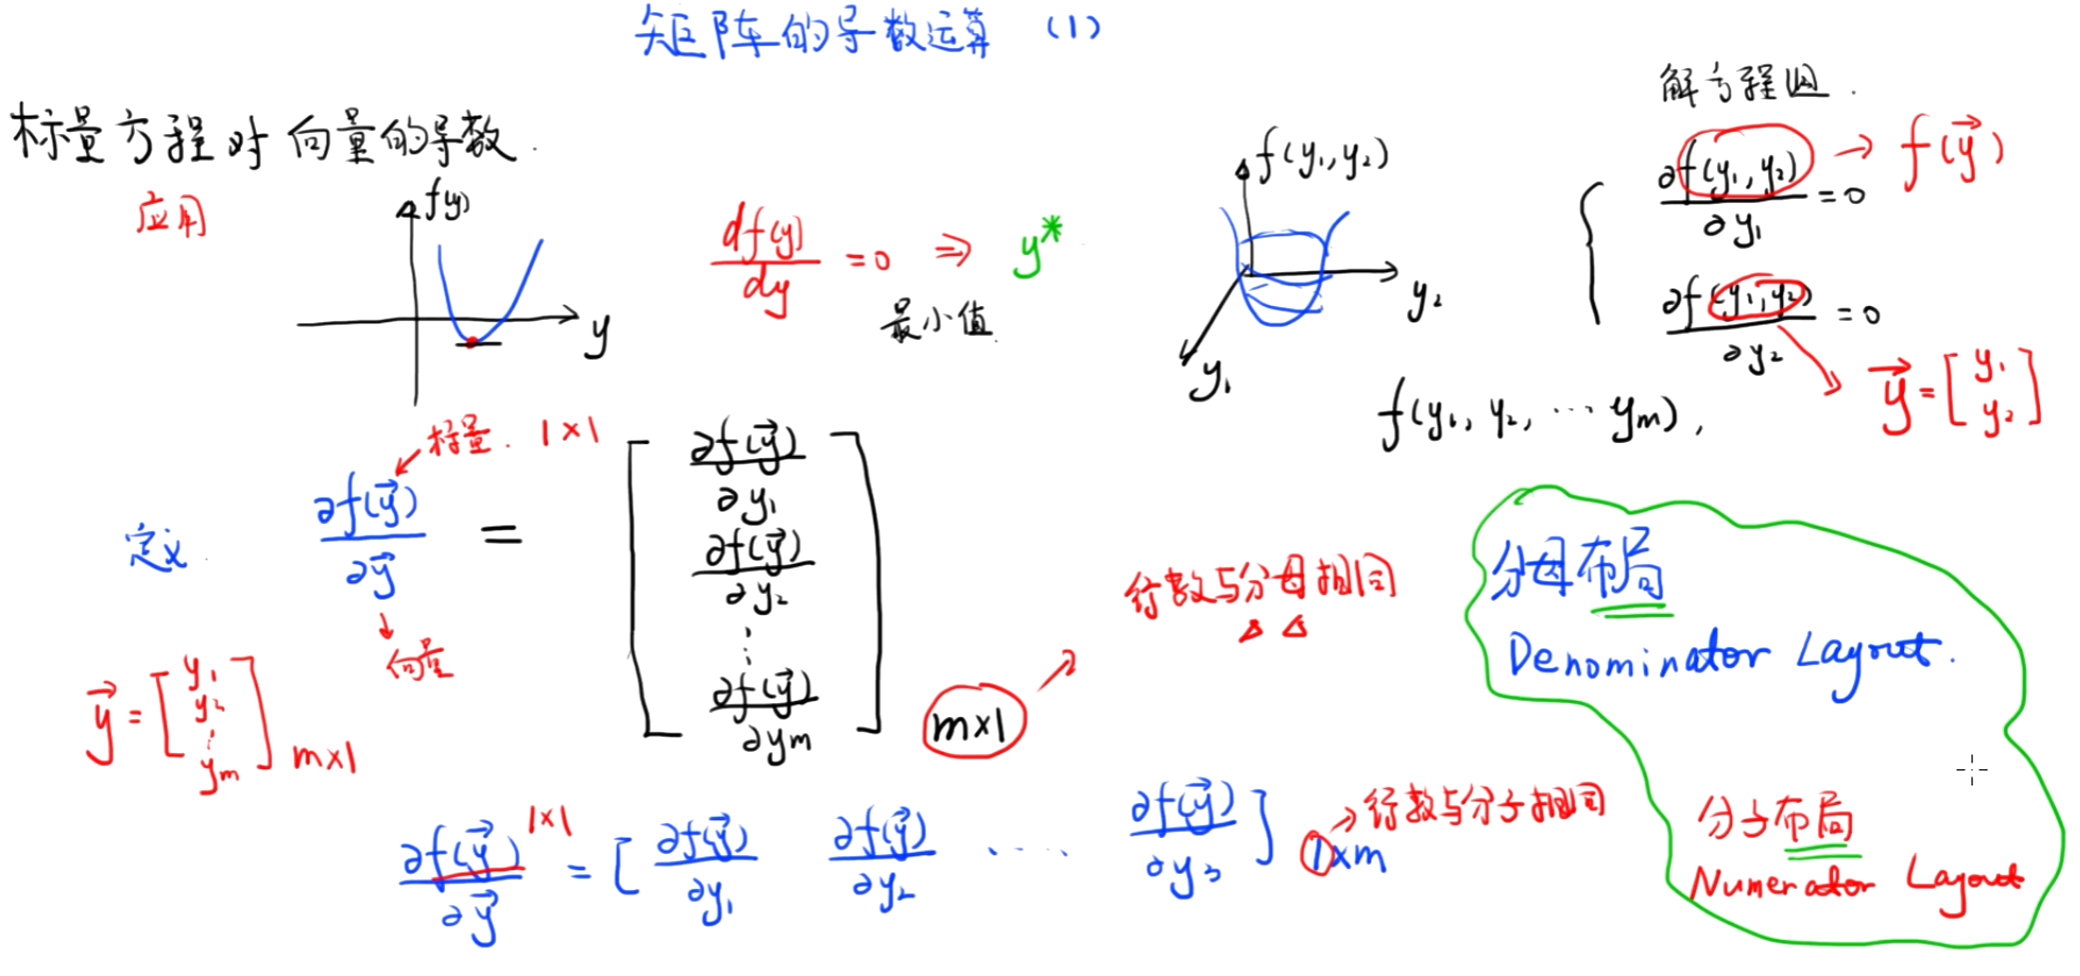 矩阵的导数运算 (1)
标量方程对向量的导数.
应用
f(y)
y
df(y)/dy = 0 ⇒ y*
最小值
f(y₁, y₂)
y₂
y₁
解方程组.
∂f(y₁, y₂)/∂y₁ = 0 → f(y⃗)
∂f(y₁, y₂)/∂y₂ = 0
y⃗ = [y₁ y₂]
f(y₁, y₂, ⋯ yₘ),
标量. 1×1
定义. ∂f(y⃗)/∂y⃗ = [∂f(y⃗)/∂y₁ ∂f(y⃗)/∂y₂ ⋮ ∂f(y⃗)/∂yₘ] m×1
向量
y⃗ = [y₁ y₂ ⋮ yₘ] m×1
行数与分母相同
分母布局
Denominator Layout.
∂f(y⃗)/∂y⃗ 1×1 = [∂f(y⃗)/∂y₁ ∂f(y⃗)/∂y₂ ⋯⋯ ∂f(y⃗)/∂y₃] 1×m
行数与分子相同
分子布局
Numerator Layout